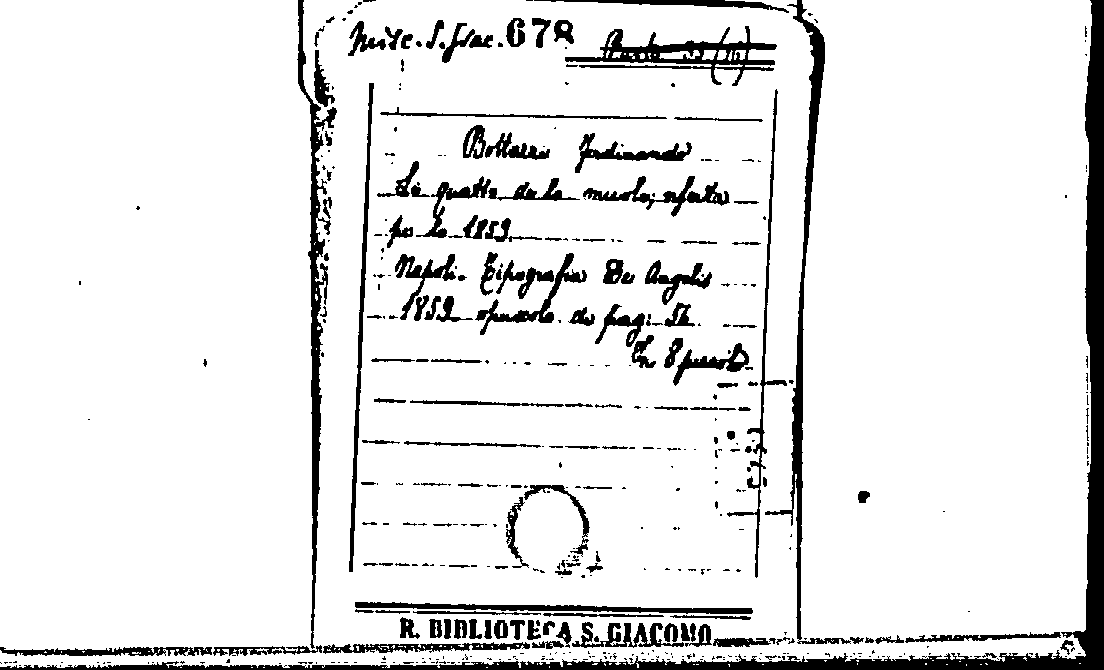 Misc. S. Giac. 678 Busta 33 (16)
Bottazzi Ferdinando
Li quatto de lo muolo; nferta
pe lo 1859
Napoli. Tipografia De Angelis
1859 opuscolo di pag: 52
In 8 piccolo
R. BIBLIOTECA S. GIACOMO